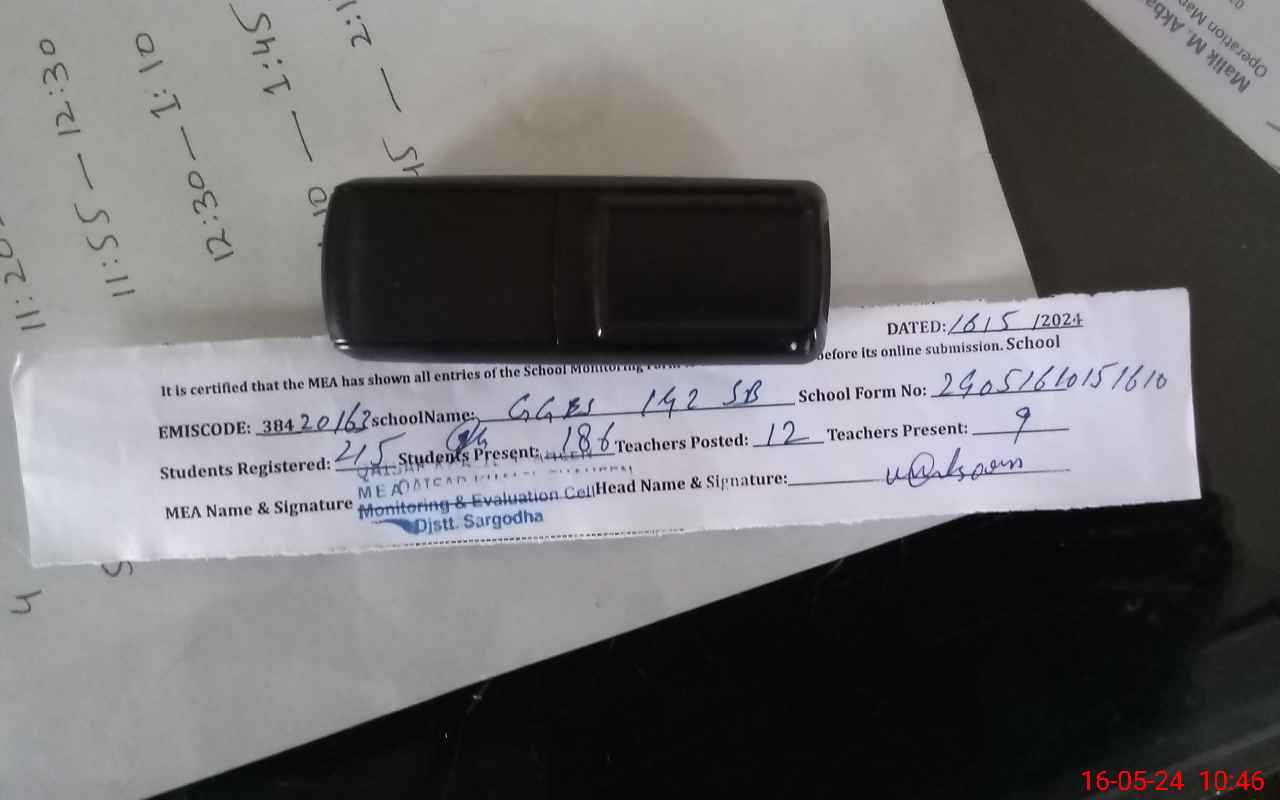 DATED: 16/5 /2024
It is certified that the MEA has shown all entries of the School Monitoring before its online submission. School
EMISCODE: 38420163 schoolName: GGES 142 SB School Form No: 29051610151610
Students Registered: 215 Students Present: 186 Teachers Posted: 12 Teachers Present: 9
MEA Name & Signature MEA Head Name & Signature:
Monitoring & Evaluation Cell
Distt. Sargodha
11:55 — 12:30
12:30 — 1:10
1:10 — 1:45
1:45 — 2:1
11:20
Malik M. Akba
Operation Man
16-05-24 10:46